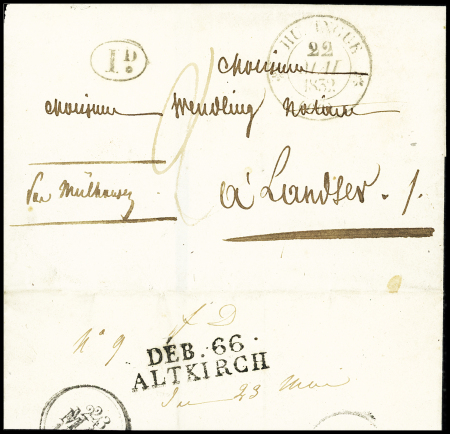 1D.
HUNINGUE
22
MAI
1832
Monsieur
Monsieur Wendling Notaire
par Mülhausen
à Landser. /.
2
f D
N° 9
DÉB. 66.
ALTKIRCH
Du 23 Mai
23